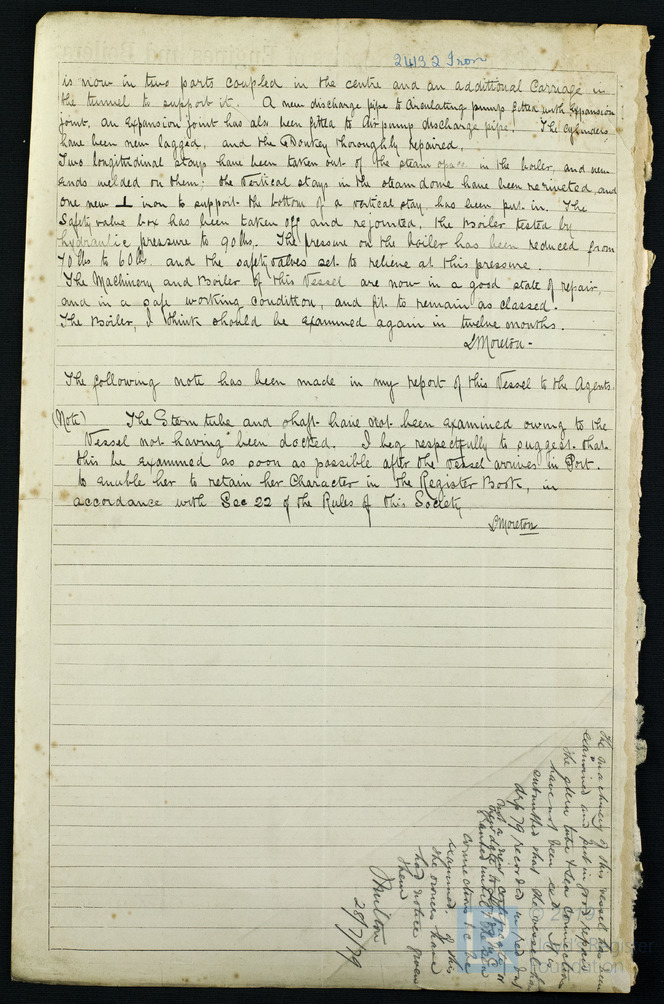 2432 Iron
is now in two parts coupled in the centre and an additional Carriage in
the tunnel to support it. A new discharge pipe to Circulating pumps fitted with Expansion
joint, an expansion joint has also been fitted to Air pump discharge pipe. The Cylinders
have been new lagged, and the Donkey thoroughly repaired,
Two longitudinal stays have been taken out of the steam space in the boiler, and new
ends welded on them: the vertical stays in the steam dome have been reriveted, and
one new ⊥ iron to support the bottom of a vertical stay has been put in. The
Safety valve box has been taken off and rejointed, the Boiler tested by
hydraulic pressure to 90 lbs. The pressure on the boiler has been reduced from
70 lbs to 60 lbs and the safety valves set to relieve at this pressure.
The Machinery and Boiler of this Vessel are now in a good state of repair,
and in a safe working condition, and fit to remain as classed.
The Boiler, I think should be examined again in twelve months.
Moreton
The following note has been made in my report of this Vessel to the Agents.
(Note) The Stern tube and shaft have not been examined owing to the
Vessel not having been docked. I beg respectfully to suggest that
this be examined as soon as possible after the Vessel arrives in Port.
to enable her to retain her Character in the Register Book, in
accordance with Sec 22 of the Rules of this Society
Moreton
The machinery of this vessel has been
examined and put in good repair
The stern tube & sea connections
have not been exd. It is
submitted that the vessel has
79 recorded in red but
granted until the Sea
connections be
examined. Of this
the owners have
had notice given
them
28/7/79
Lloyd's Register
Foundation